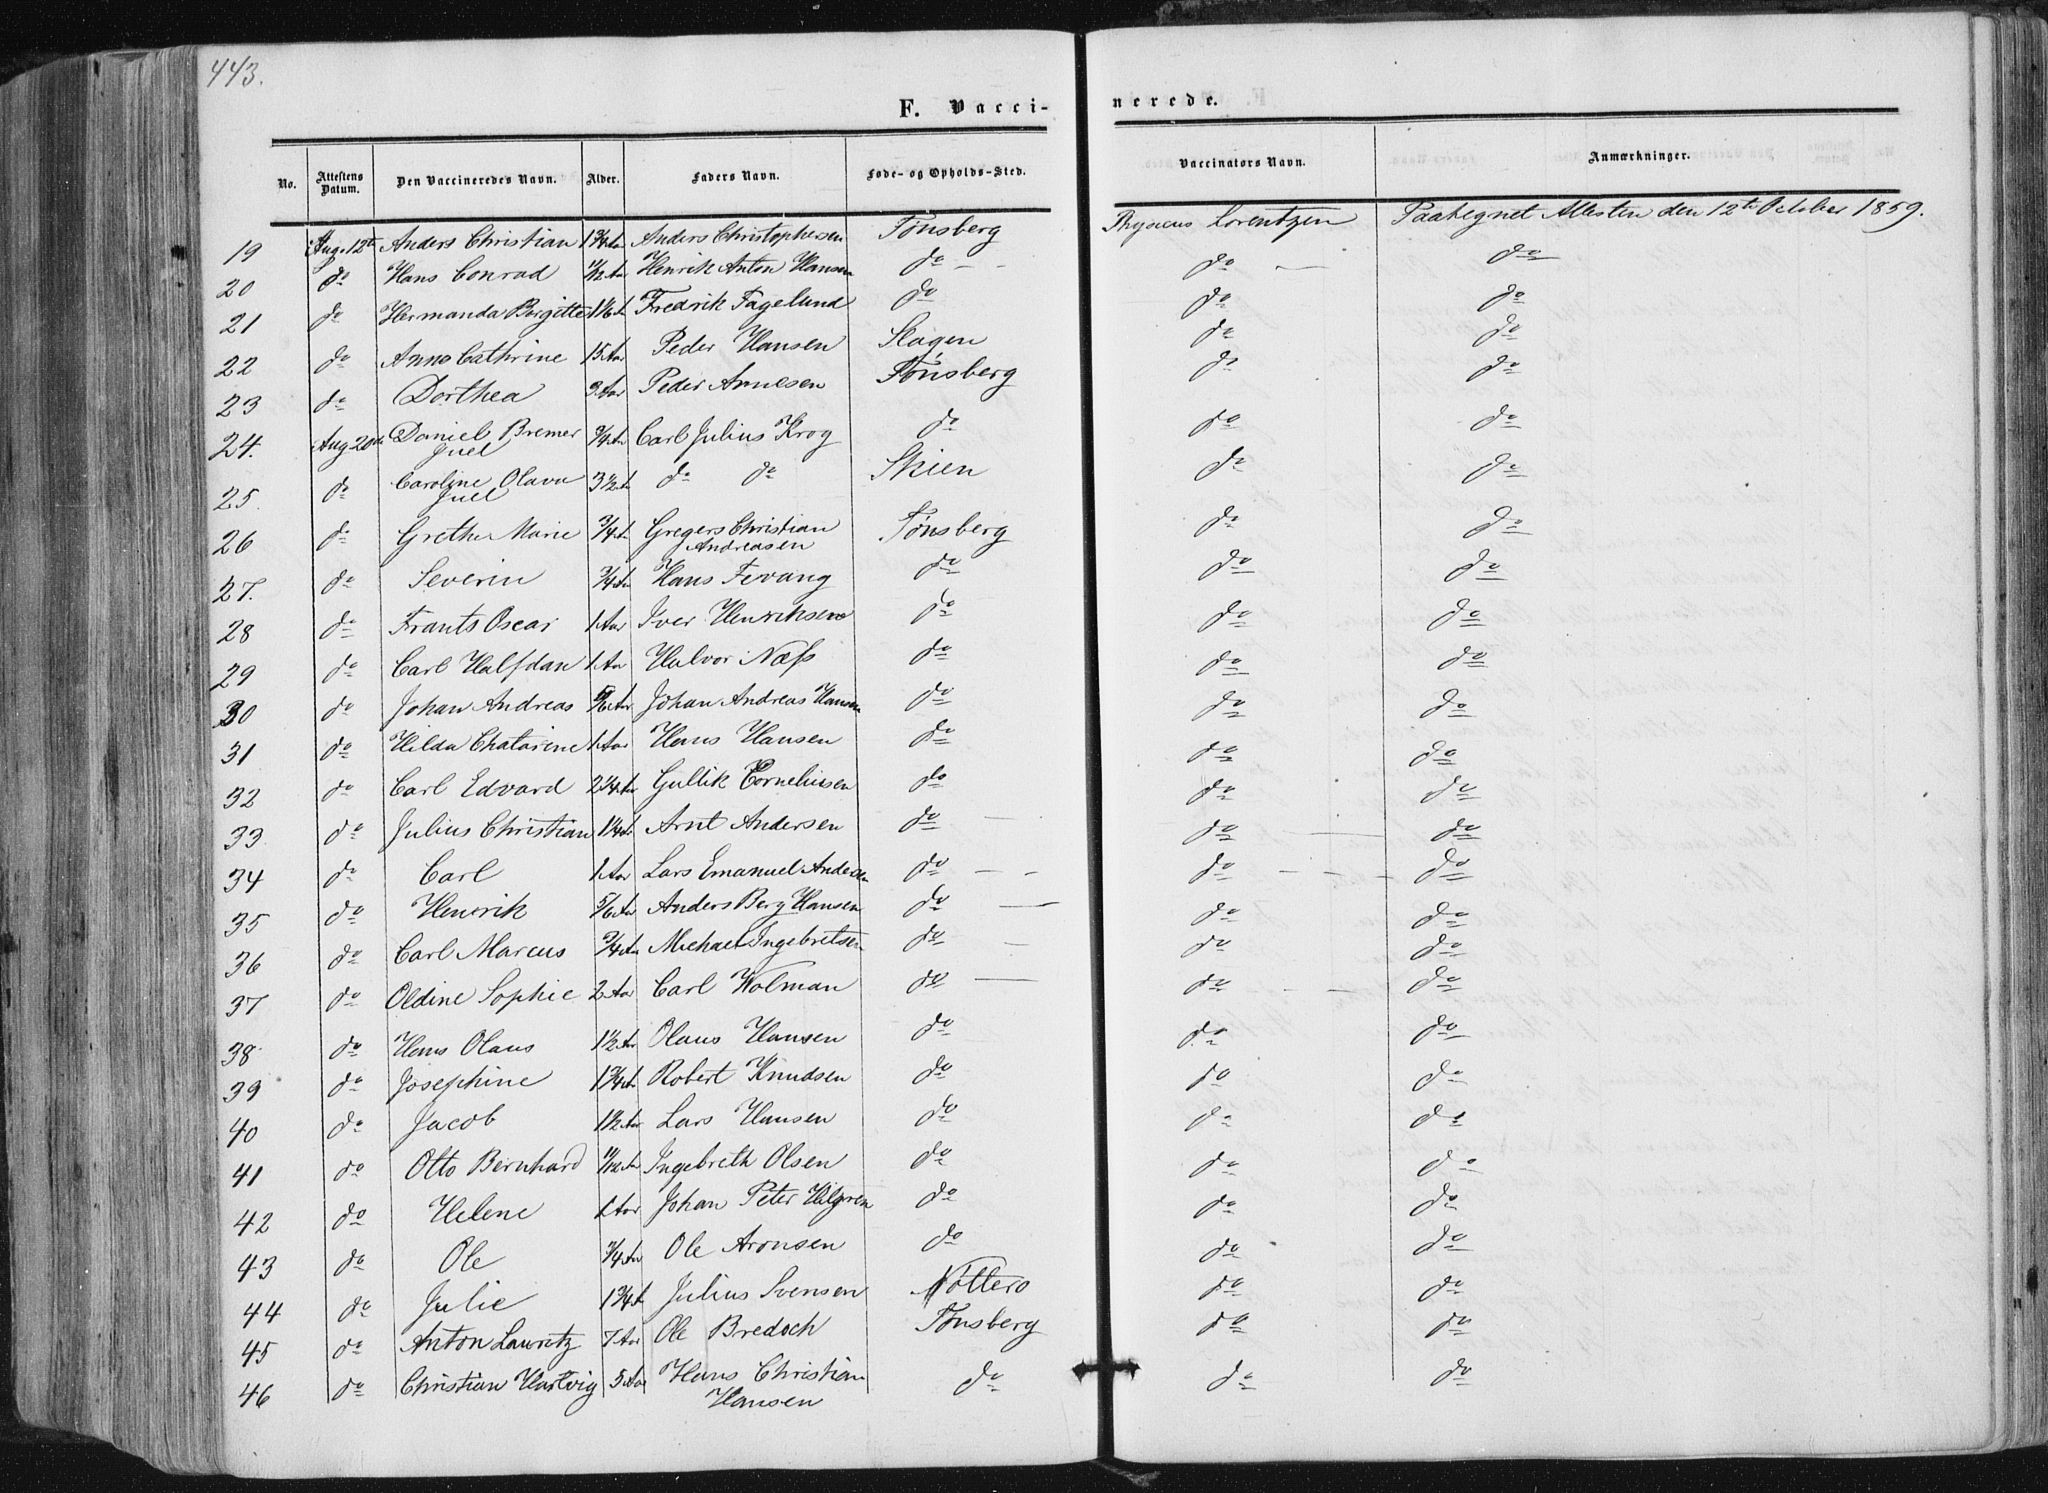 443.
F. Vacci-
nerede.
No. Attestens Datum. Den Vaccineredes Navn. Alder. Faders Navn. Føde- og Opholds-Sted. Vaccinators Navn. Anmærkninger.
19 Aug. 12te Anders Christian 1 3/4 Aar Anders Christophersen Tønsberg Physicus Lorentzen Paategnet Attesten den 12te October 1859.
20 do Hans Conrad 11/12 Aar Henrik Anton Hansen do do do
21 do Hermanda Birgitte 1 1/6 A Fredrik Fagelund do do do
22 do Anne Cathrine 15 Aar Peder Hansen Slagen do do
23 do Dorthea 3 Aar Peder Arnesen Tønsberg do do
24. Aug 20de Daniel Bremer Juel 3/4 Aar Carl Julius Krog do do do
25. do Caroline Olava Juel 3 1/2 A do do Skien do do
26 do Grethe Marie 3/4 A Gregers Christian Andreasen Tønsberg do do
27. do Severin 3/4 Aar Hans Fevang do do do
28 do Frants Oscar 1 Aar Iver Henriksen do do do
29 do Carl Halfdan 1 Aar Halvor Næss do do do
30 do Johan Andreas 5/6 Aar Johan Andreas Hansen do do do
31 do Hilda Chatarine 1 Aar Hans Hansen do do do
32 do Carl Edvard 2 1/4 Aar Gullik Corneliusen do do do
33 do Julius Christian 1 1/4 A Arnt Andersen do do do
34 do Carl 1 Aar Lars Emanuel Andersen do do do
35 do Henrik 5/6 Aar Anders Berg Hansen do do do
36 do Carl Marcus 3/4 Aar Michael Ingebretsen do do do
37 do Oldine Sophie 2 Aar Carl Wolman do do do
38 do Hans Olaus 1 1/2 Aar Olaus Hansen do do do
39 do Josephine 1 3/4 A Robert Knudsen do do do
40 do Jacob 1 1/2 Aar Lars Hansen do do do
41 do Otto Bernhard 11/12 A Ingebreth Olsen do do do
42 do Helene 1 Aar Johan Peter Hilgren do do do
43 do Ole 3/4 Aar Ole Aronsen do do do
44 do Julie 1 3/4 A Julius Svensen Nøtterø do do
45 do Anton Lauritz 7 Aar Ole Bredoch Tønsberg do do
46 do Christian Hartvig 5 Aar Hans Christian Hansen do do do